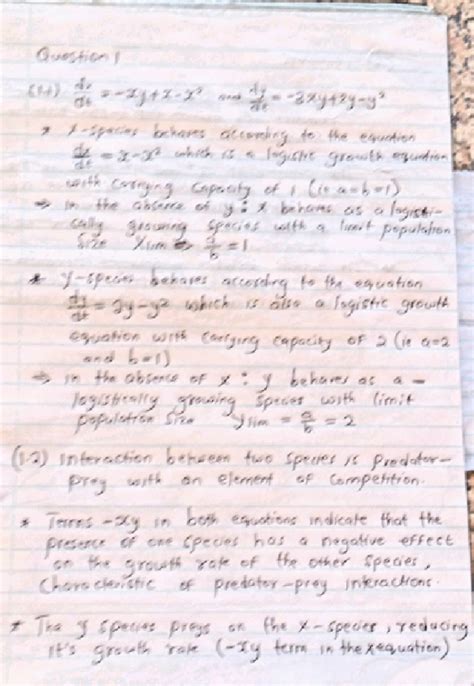 Question 1
(1.1) dx/dt = -xy+x-x² and dy/dt = -3xy+2y-y²
* x-species behaves according to the equation
dx/dt = x-x² which is a logistic growth equation
with carrying capacity of 1 (ie a=b=1)
⇒ in the absence of y : x behaves as a logisti-
cally growing species with a limit population
size Xlim ⇒ a/b = 1
* Y-species behaves according to the equation
dy/dt = 2y-y² which is also a logistic growth
equation with carrying capacity of 2 (ie a=2
and b=1)
⇒ in the absence of x : y behaves as a -
logistically growing species with limit
population size Ylim = a/b = 2
(1.2) Interaction between two species is predator-
prey with an element of competition.
* Terms -xy in both equations indicate that the
presence of one species has a negative effect
on the growth rate of the other species,
characteristic of predator-prey interactions.
* The y species preys on the x-species, reducing
it's growth rate (-xy term in the x equation)